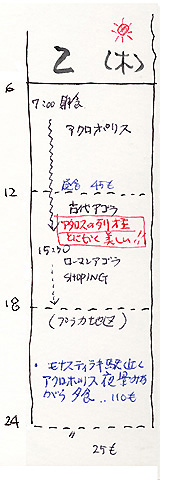 2 (木)
6
7:00 朝食
アクロポリス
12
昼食 45€
古代アゴラ
アタロスの列柱
とにかく美しい!!
15:30
ローマンアゴラ
SHOPING
18
(プラカ地区)
• モナスティラキ駅近く
アクロポリス夜景ながめ
ながら夕食 .. 110€
24
〃
25€